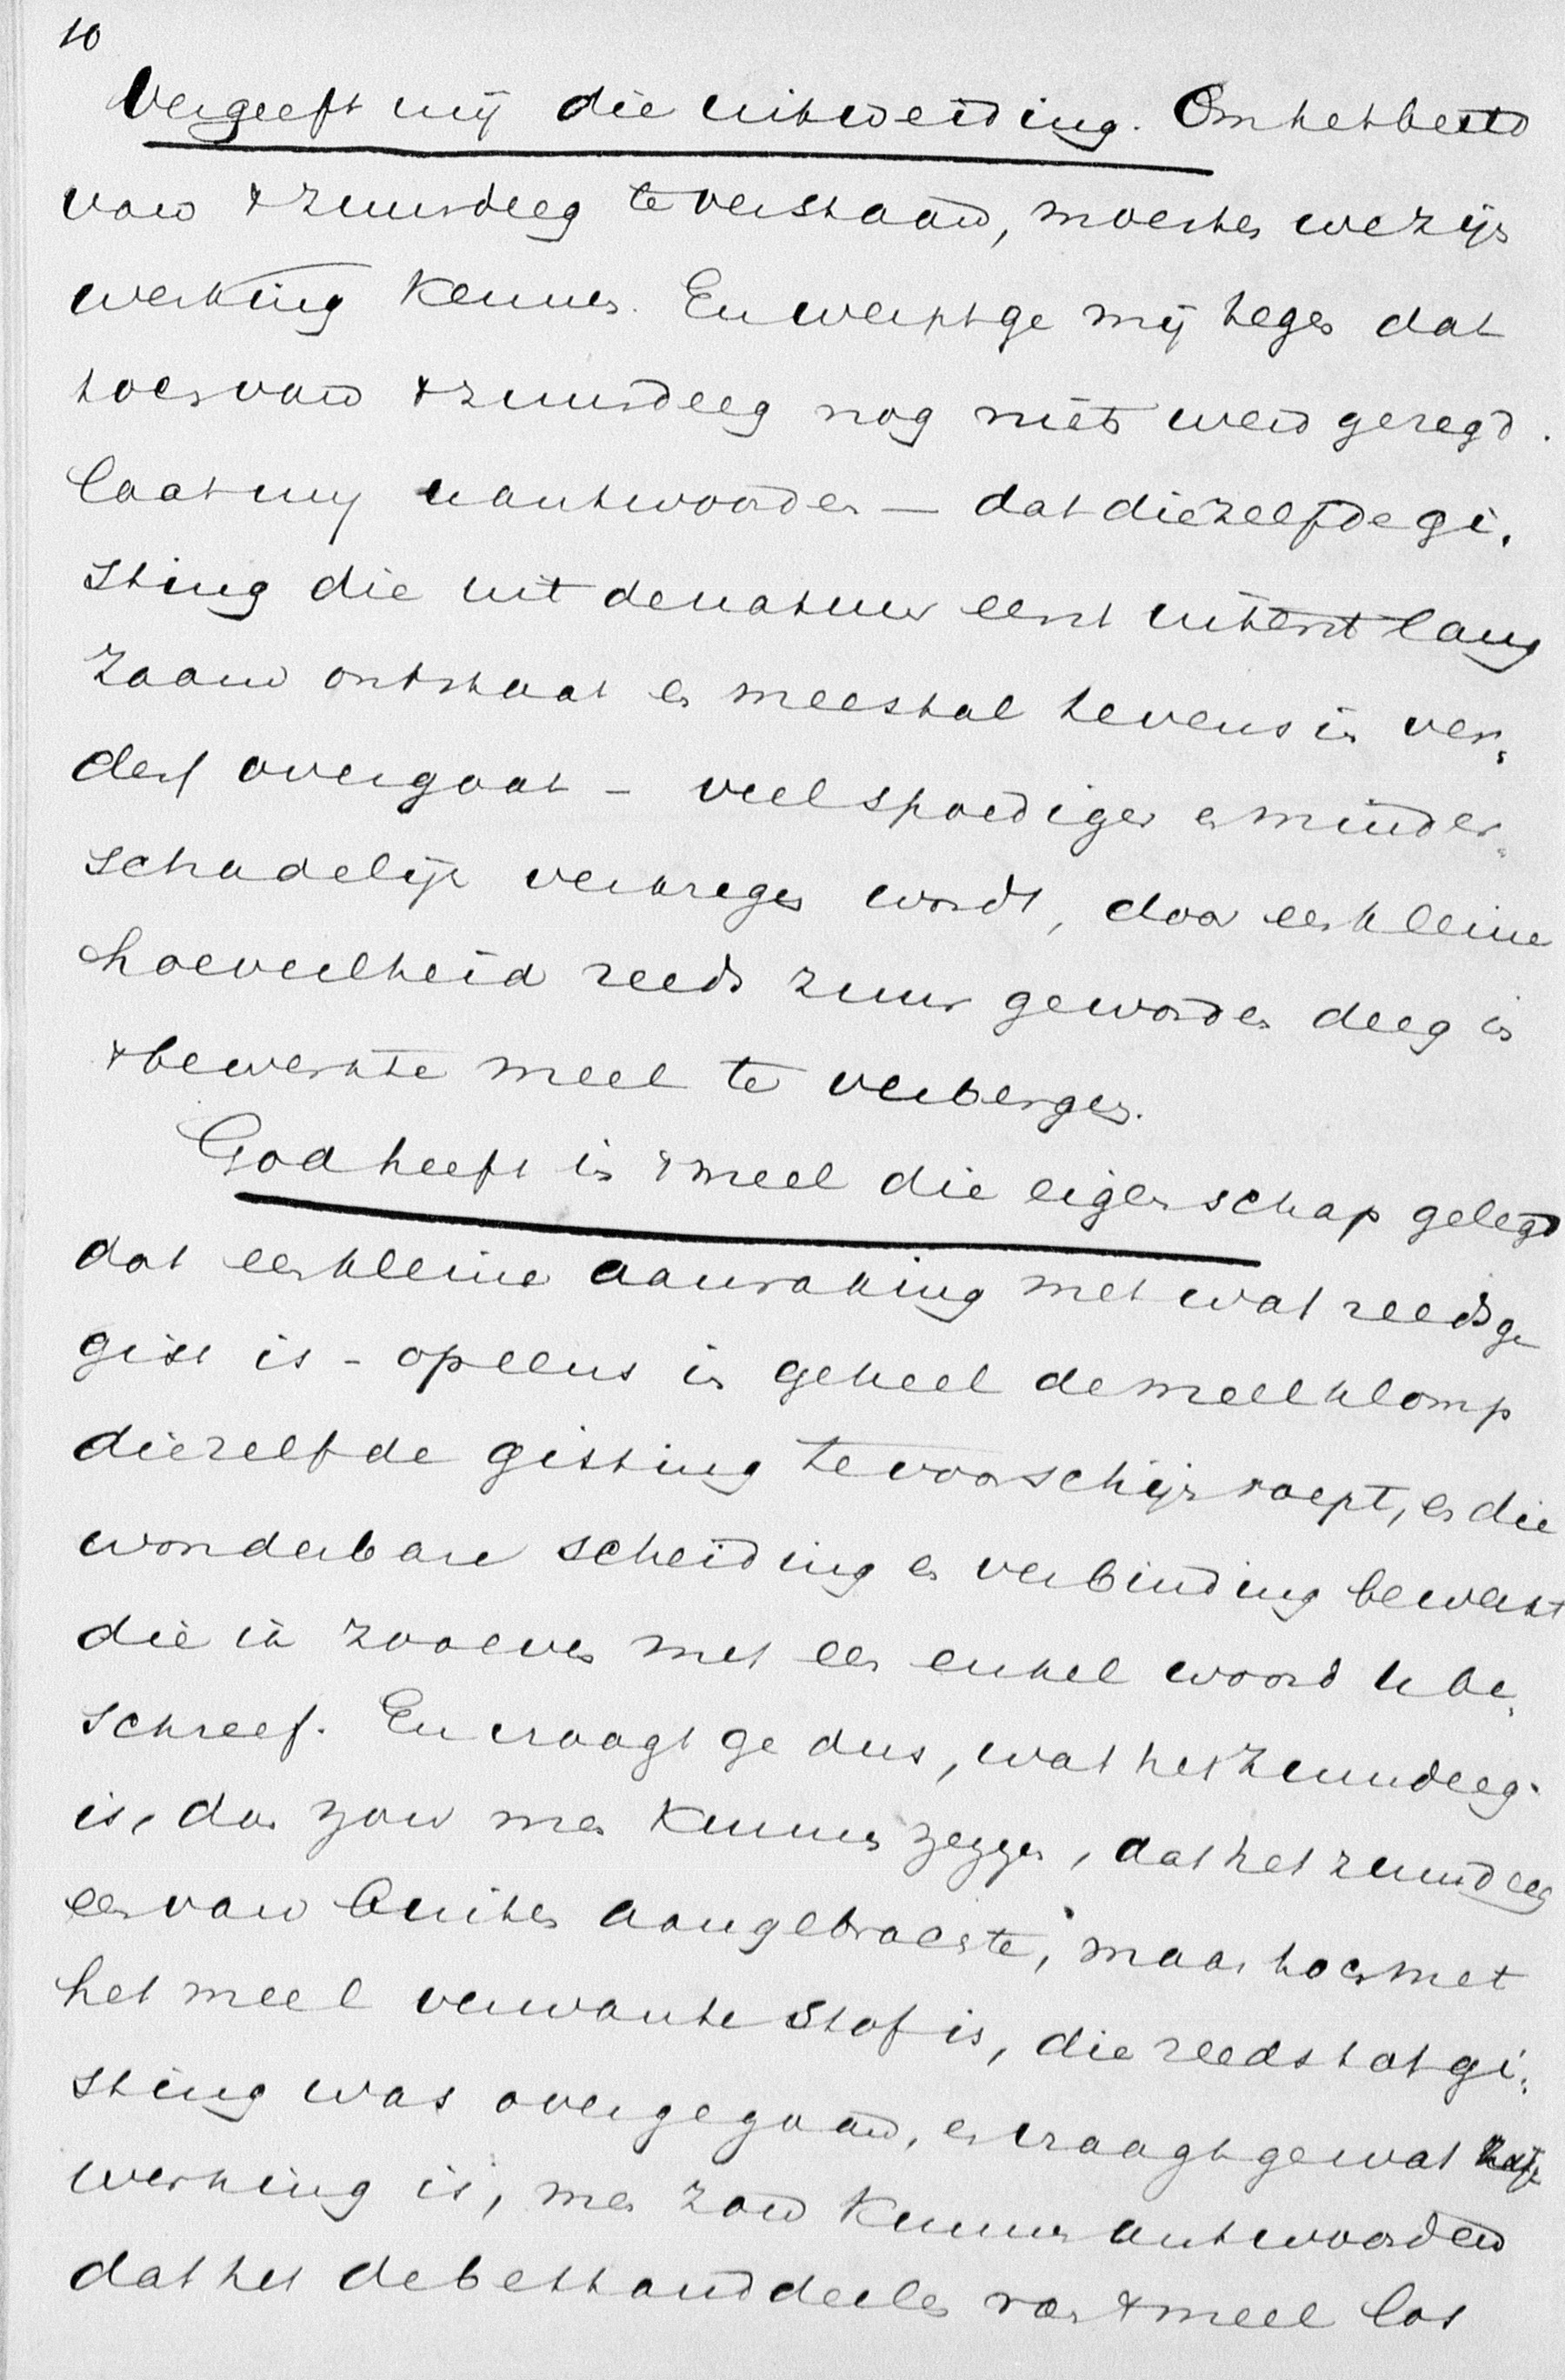 10
Vergeeft mij die uitweiding. Om het beeld
van 't zuurdeeg te verstaan, moesten we zijn
werking kennen. En werpt ge mij tegen dat
toen van 't zuurdeeg nog niets werd gezegd.
laat mij u antwoorden — dat diezelfde gi-
sting die uit de natuur eerst uiterst lang
zaam ontstaat en meestal tevens in ver-
derf overgaat - veel spoediger en minder-
schadelijk verkregen wordt, door een kleine
hoeveelheid reeds zuur geworden deeg in
't bewerkte meel te verbergen.
God heeft in 't meel die eigenschap gelegd
dat een kleine aanraking met wat reeds ge
gist is - opeens in geheel de meelklomp
diezelfde gisting te voorschijn roept, en die
wonderbare scheiding en verbinding bewerkt
die ik zooeven met een enkel woord u be-
schreef. En vraagt ge dus, wat het zuurdeeg
is, dan zou men kunnen zeggen, dat het zuurdeeg
een van buiten aangebrachte, maar toch met
het meel verwante stof is, die reeds tot gi-
sting was overgegaan, en vraagt ge wat
werking is, men zou kunnen antwoorden
dat het de bestanddeelen van 't meel los